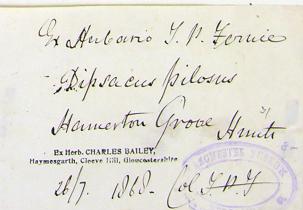 Ex Herbario T. P. Fernie
Dipsacus pilosus
Hamerton Grove Hunts
Ex Herb. CHARLES BAILEY,
Haymesgarth, Cleeve Hill, Gloucestershire.
26/7. 1868. Col T. P. F